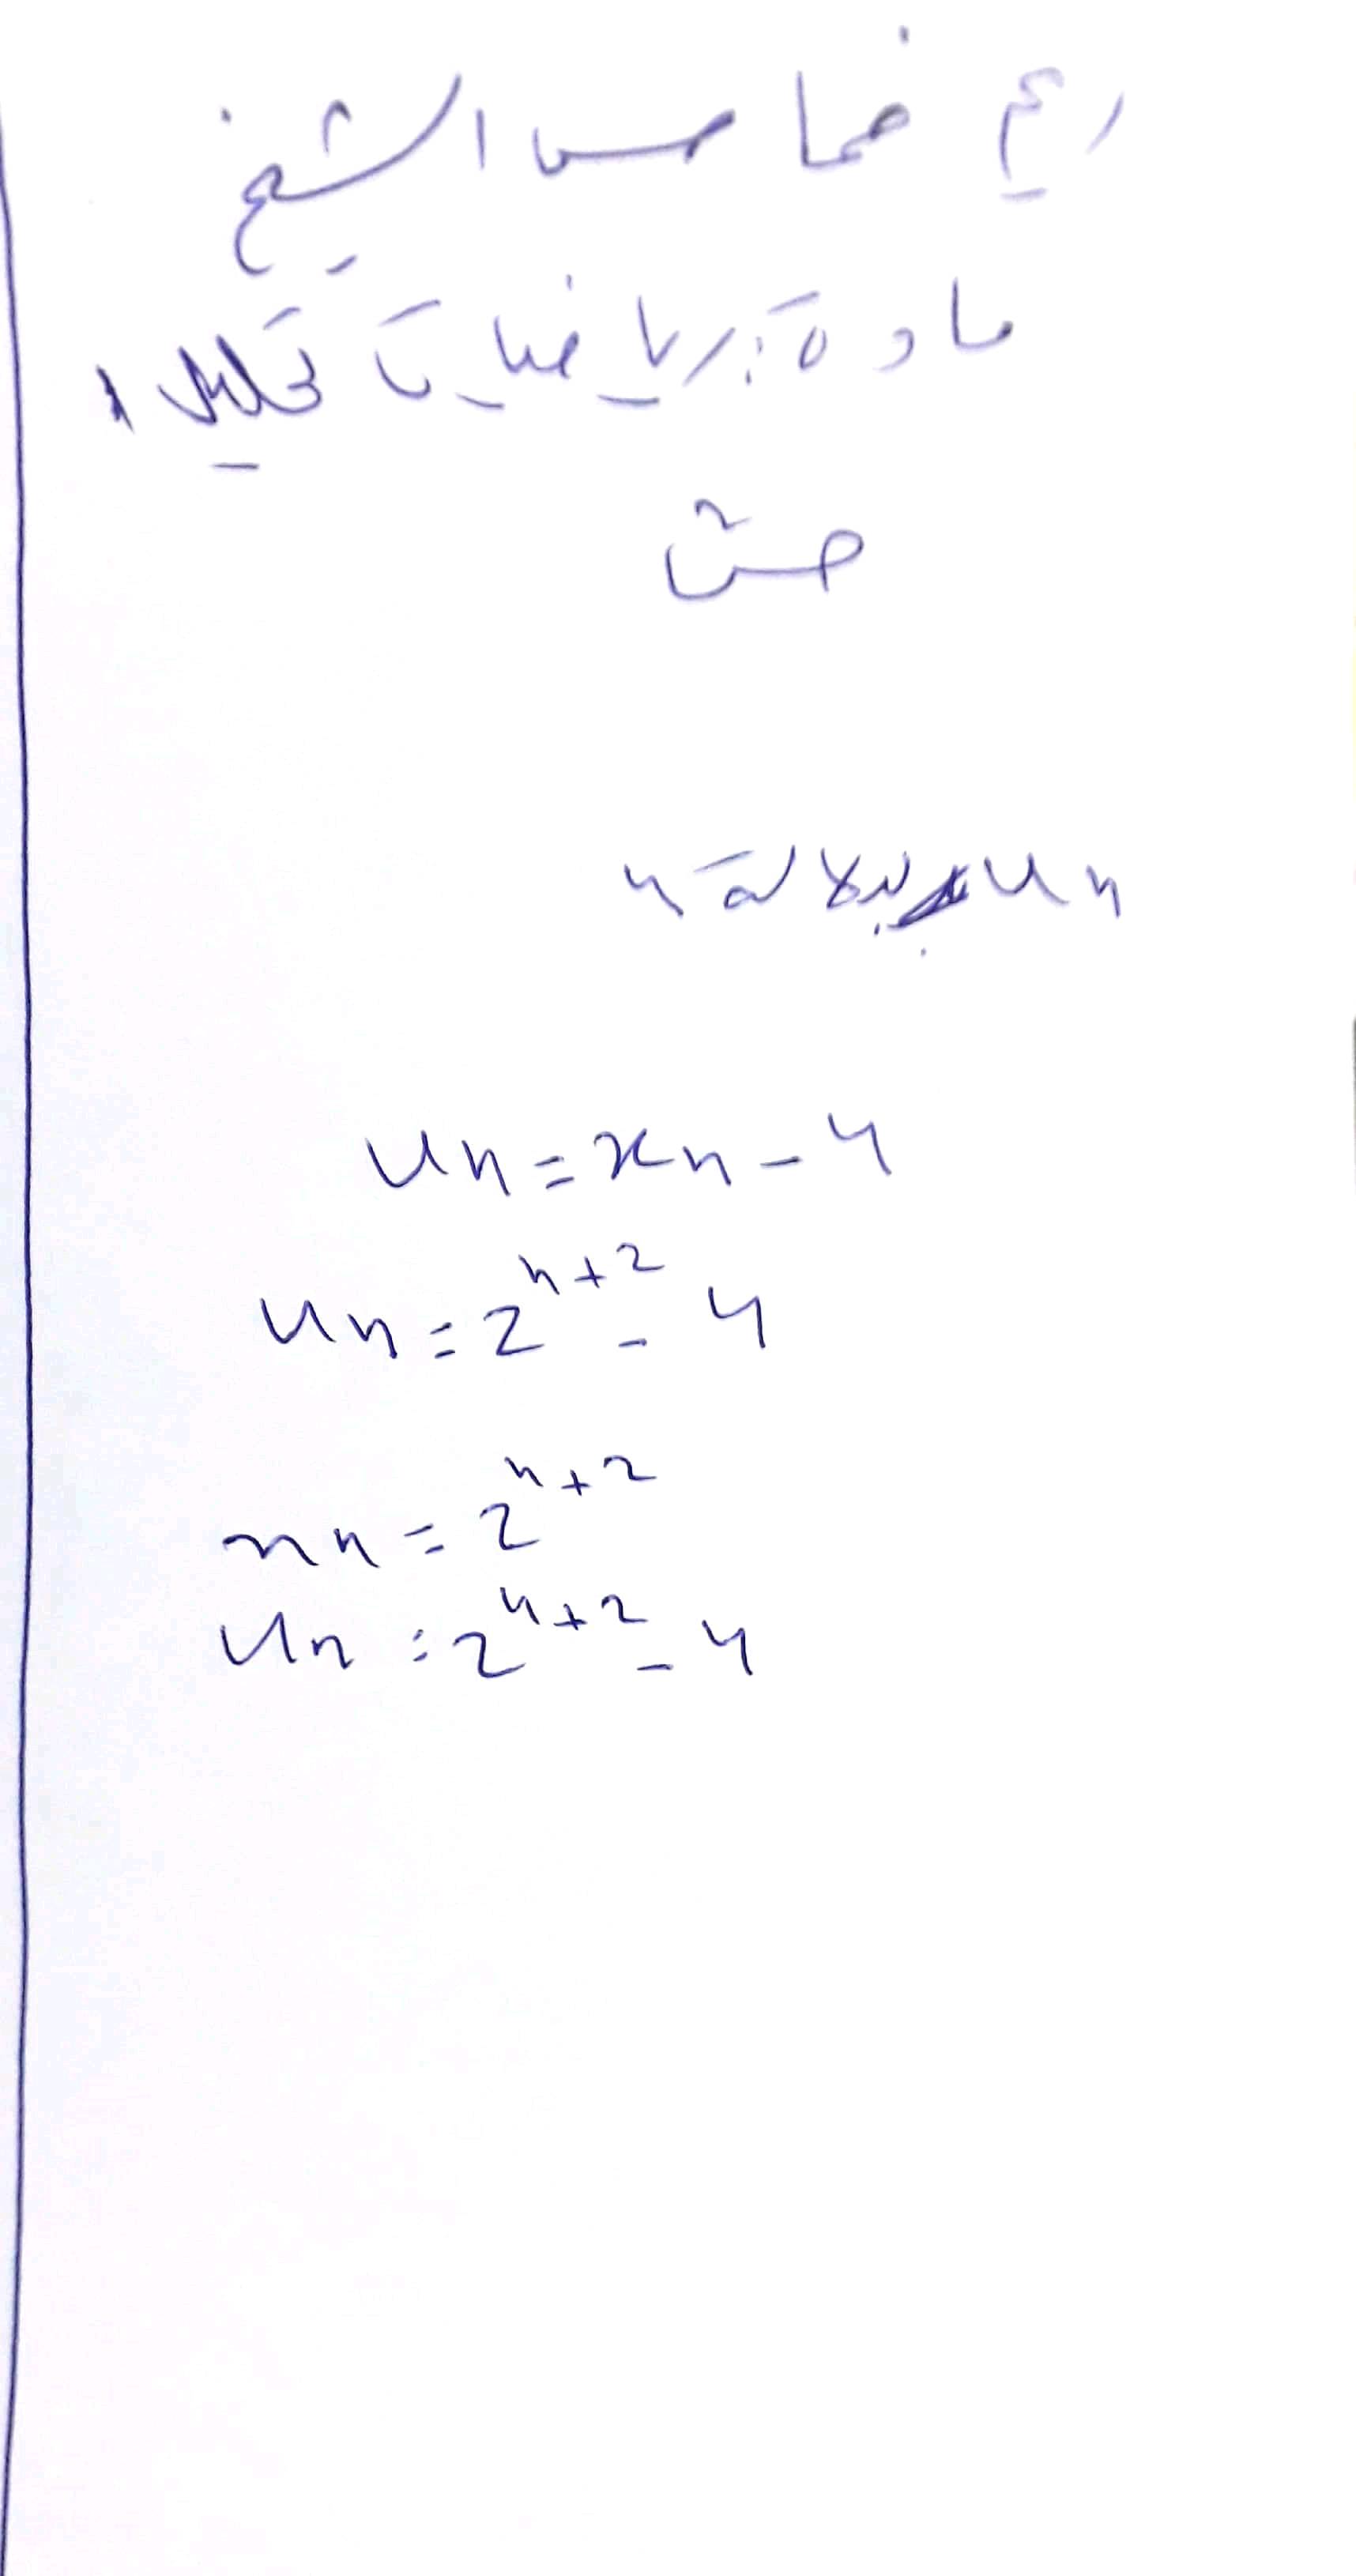 ريم خماس الشيخ
مادة: رياضيات تحليل ١
حمص
Un بدلالة n
Un = xn - 4
Un = 2^{n+2} - 4
xn = 2^{n+2}
Un = 2^{n+2} - 4